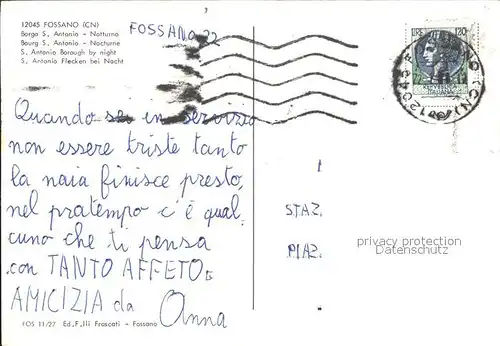 12045 FOSSANO (CN)
Borgo S. Antonio - Notturno
Bourg S. Antonio - Nocturne
S. Antonio Borough by night
S. Antonio Flecken bei Nacht
FOSSANO 22
LIRE 120
12045 FOSSANO (CN)
Quando sei in servizio
non essere triste tanto
la naia finisce presto,
nel pratempo c'è qual-
cuno che ti pensa
con TANTO AFFETO E
AMICIZIA da Anna
STAZ.
PIAZ.
privacy protection
Datenschutz
FOS 11/27 Ed. F.lli Frascati - Fossano